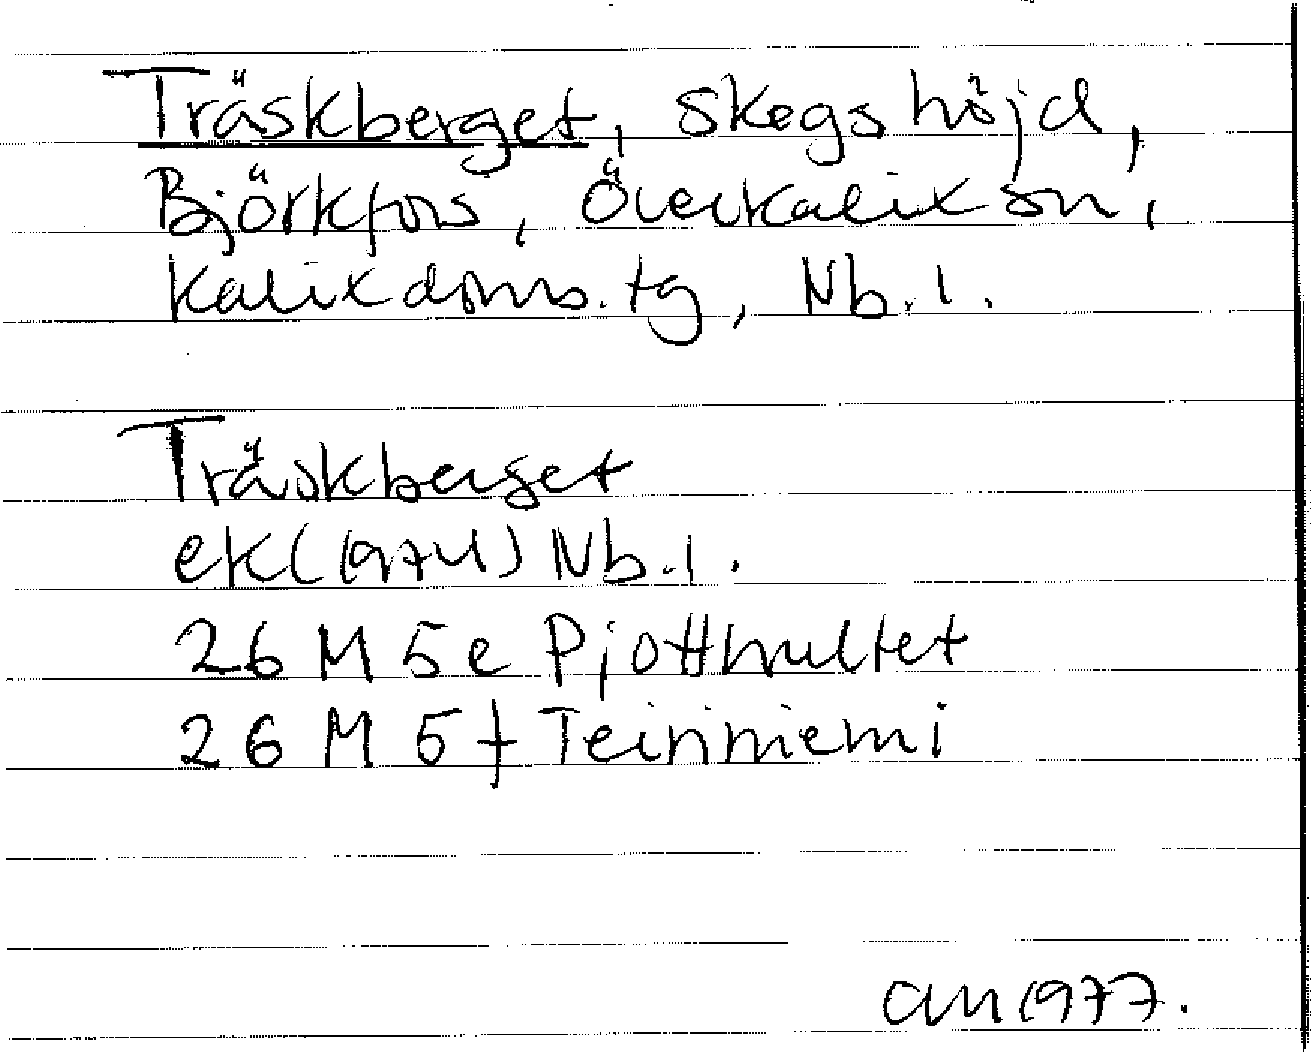 Träskberget, skogshöjd,
Björkfors, Överkalix sn,
Kalix doms.tg, Nb.l.
Träskberget
ek (1974) Nb.l.
26 M 5e Pjotthultet
26 M 5f Teirinniemi
1977.